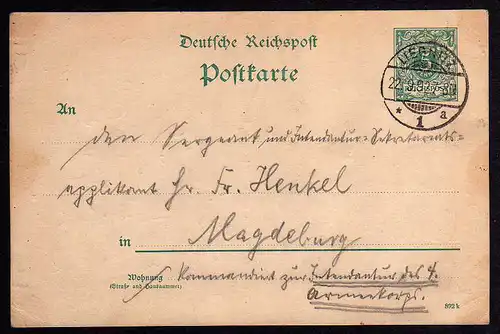 Deutsche Reichspost
Postkarte
An
den Sergeant und Intendantur-Sekretariats-
applikant Hr. Fr. Henkel
in Magdeburg
Wohnung
(Straße und Hausnummer)
kommandirt zur Intendantur des 4.
Armeekorps.
892k
22.9.92.7-8N
* 1 a